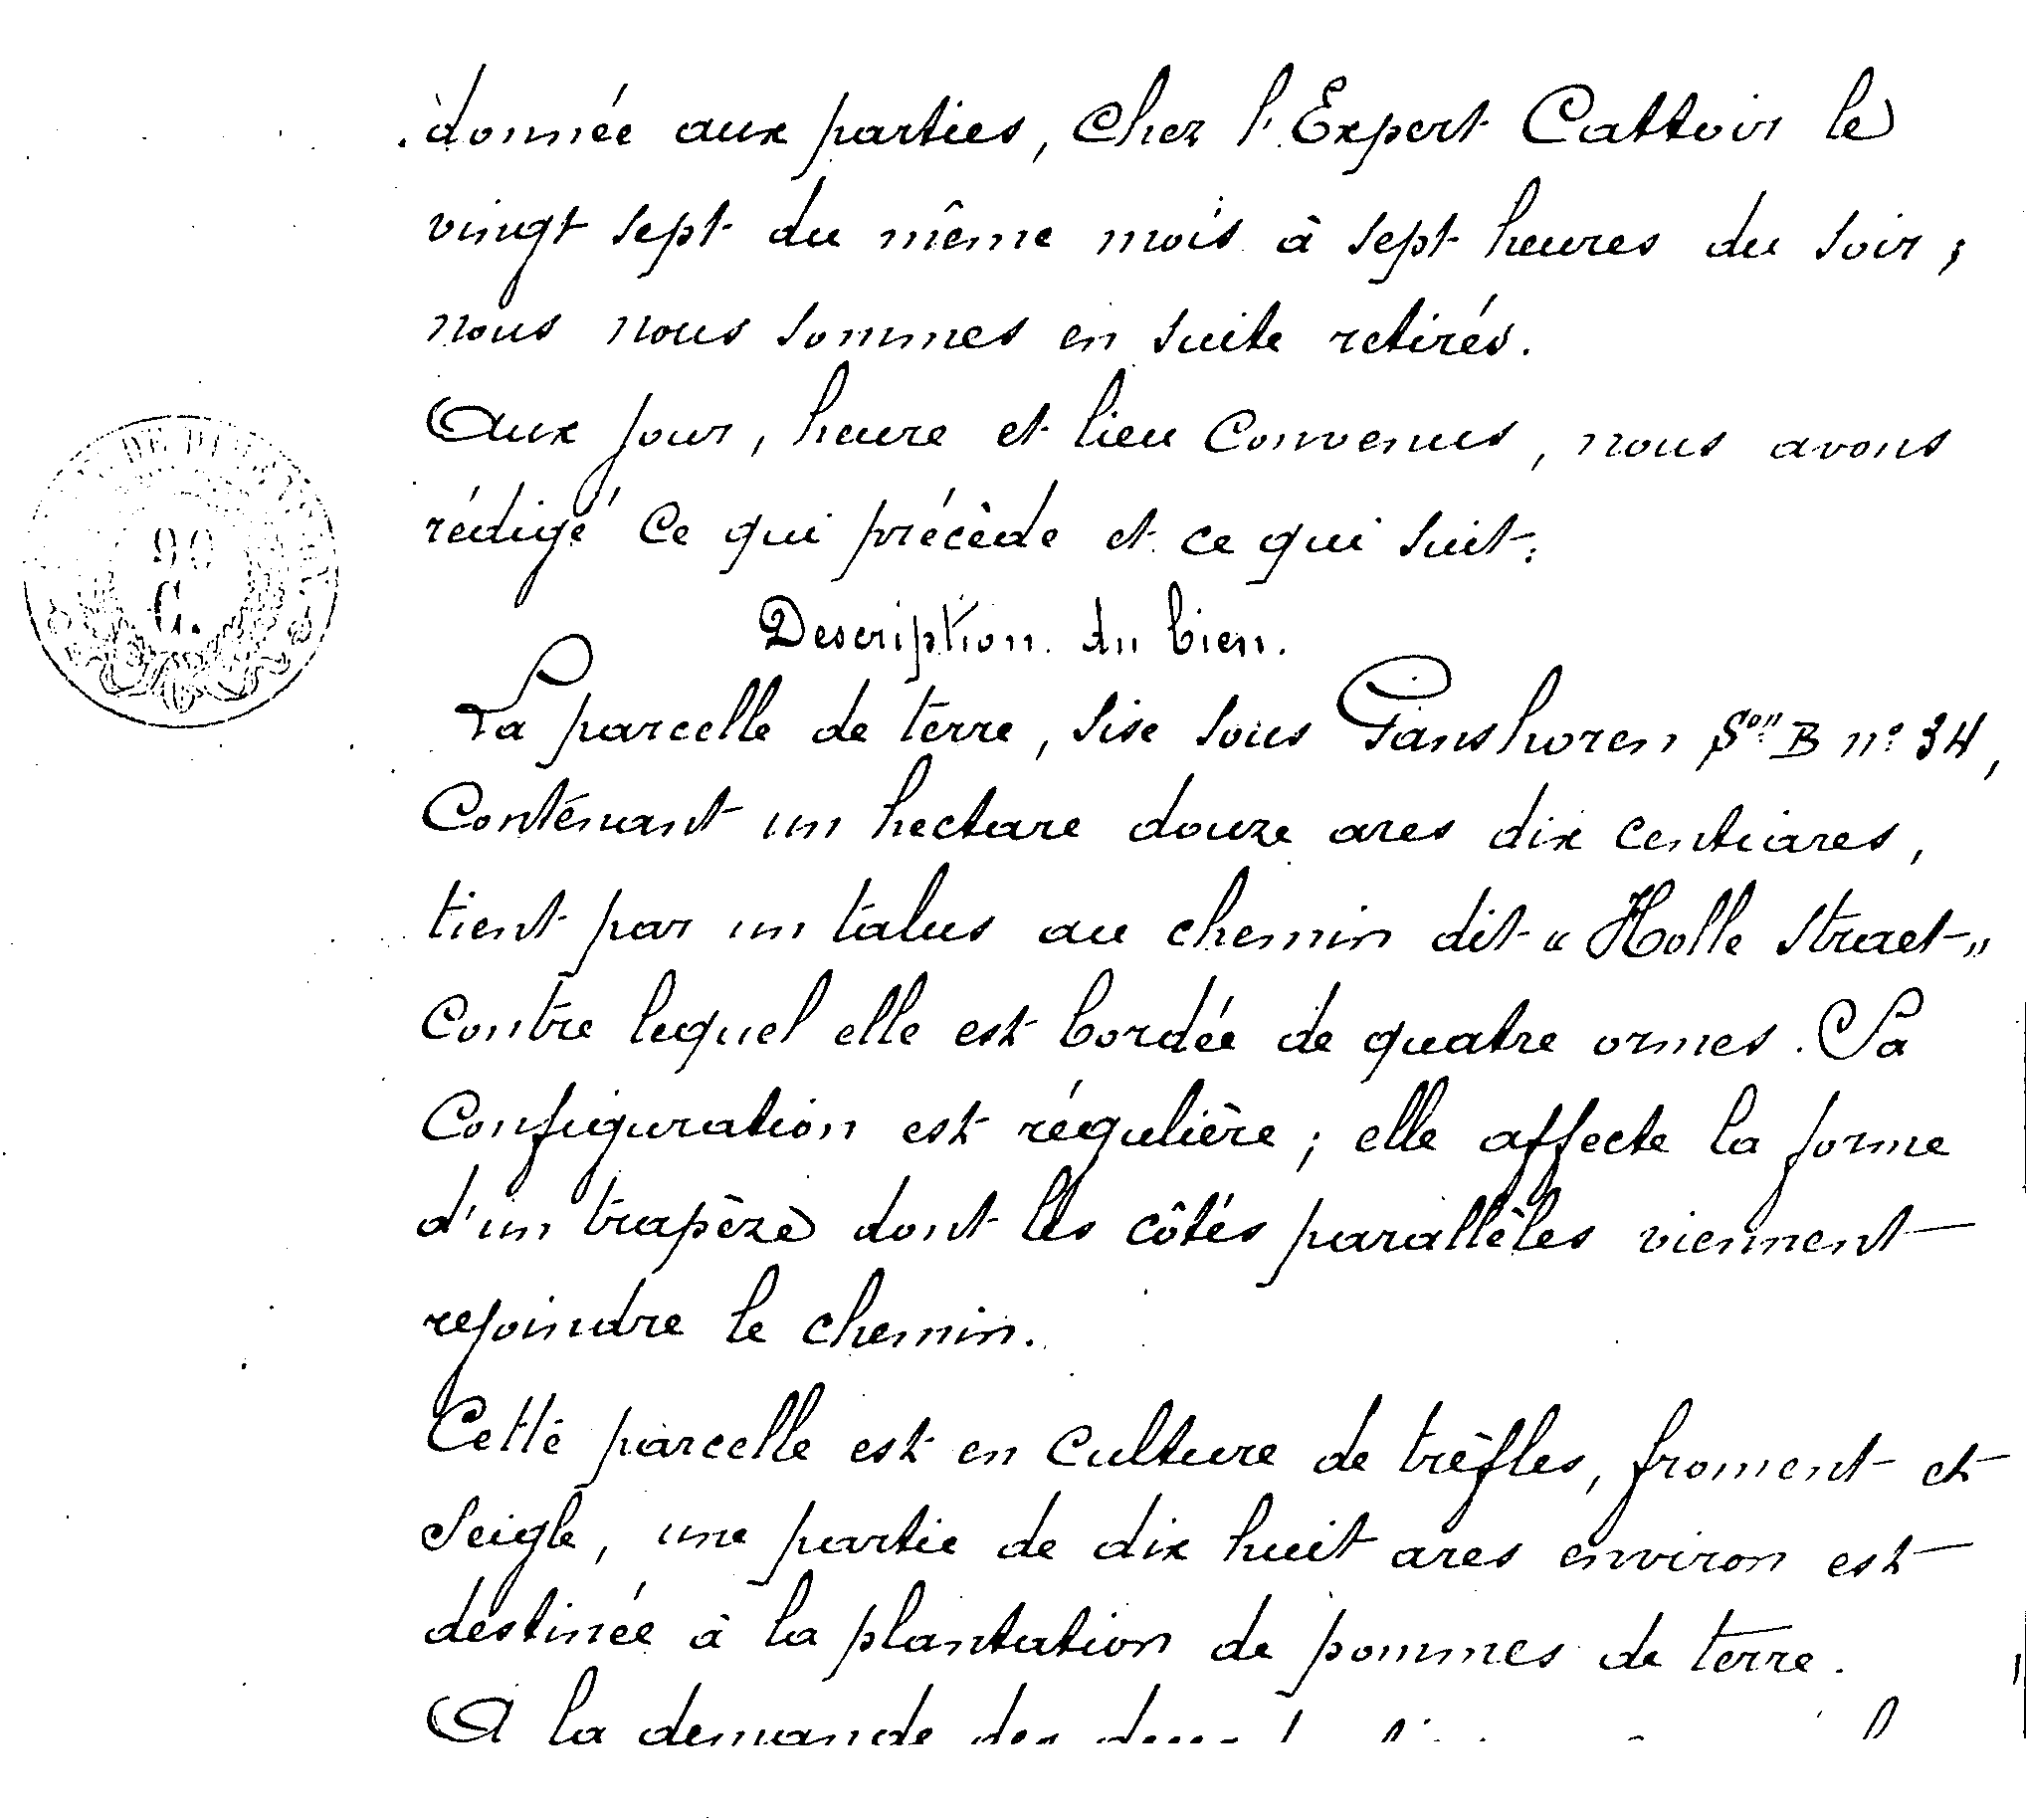 donnée aux parties, chez l'Expert Cattoir le
vingt sept du même mois à sept heures du soir,
nous nous sommes en suite retirés.
Aux jour, heure et lieu convenus, nous avons
rédigé ce qui précède et ce qui suit:
90
C.
Description du bien.
La parcelle de terre, sise sous Ganshoren Son B no 34,
contenant un hectare douze ares dix centiares,
tient par un talus au chemin dit "Holle Straet"
contre lequel elle est bordée de quatre ormes. Sa
configuration est régulière; elle affecte la forme
d'un trapèze dont les côtés parallèles viennent
rejoindre le chemin.
Cette parcelle est en culture de trèfles, froment et
seigle, une partie de dix huit ares environ est
destinée à la plantation de pommes de terre.
A la demande des